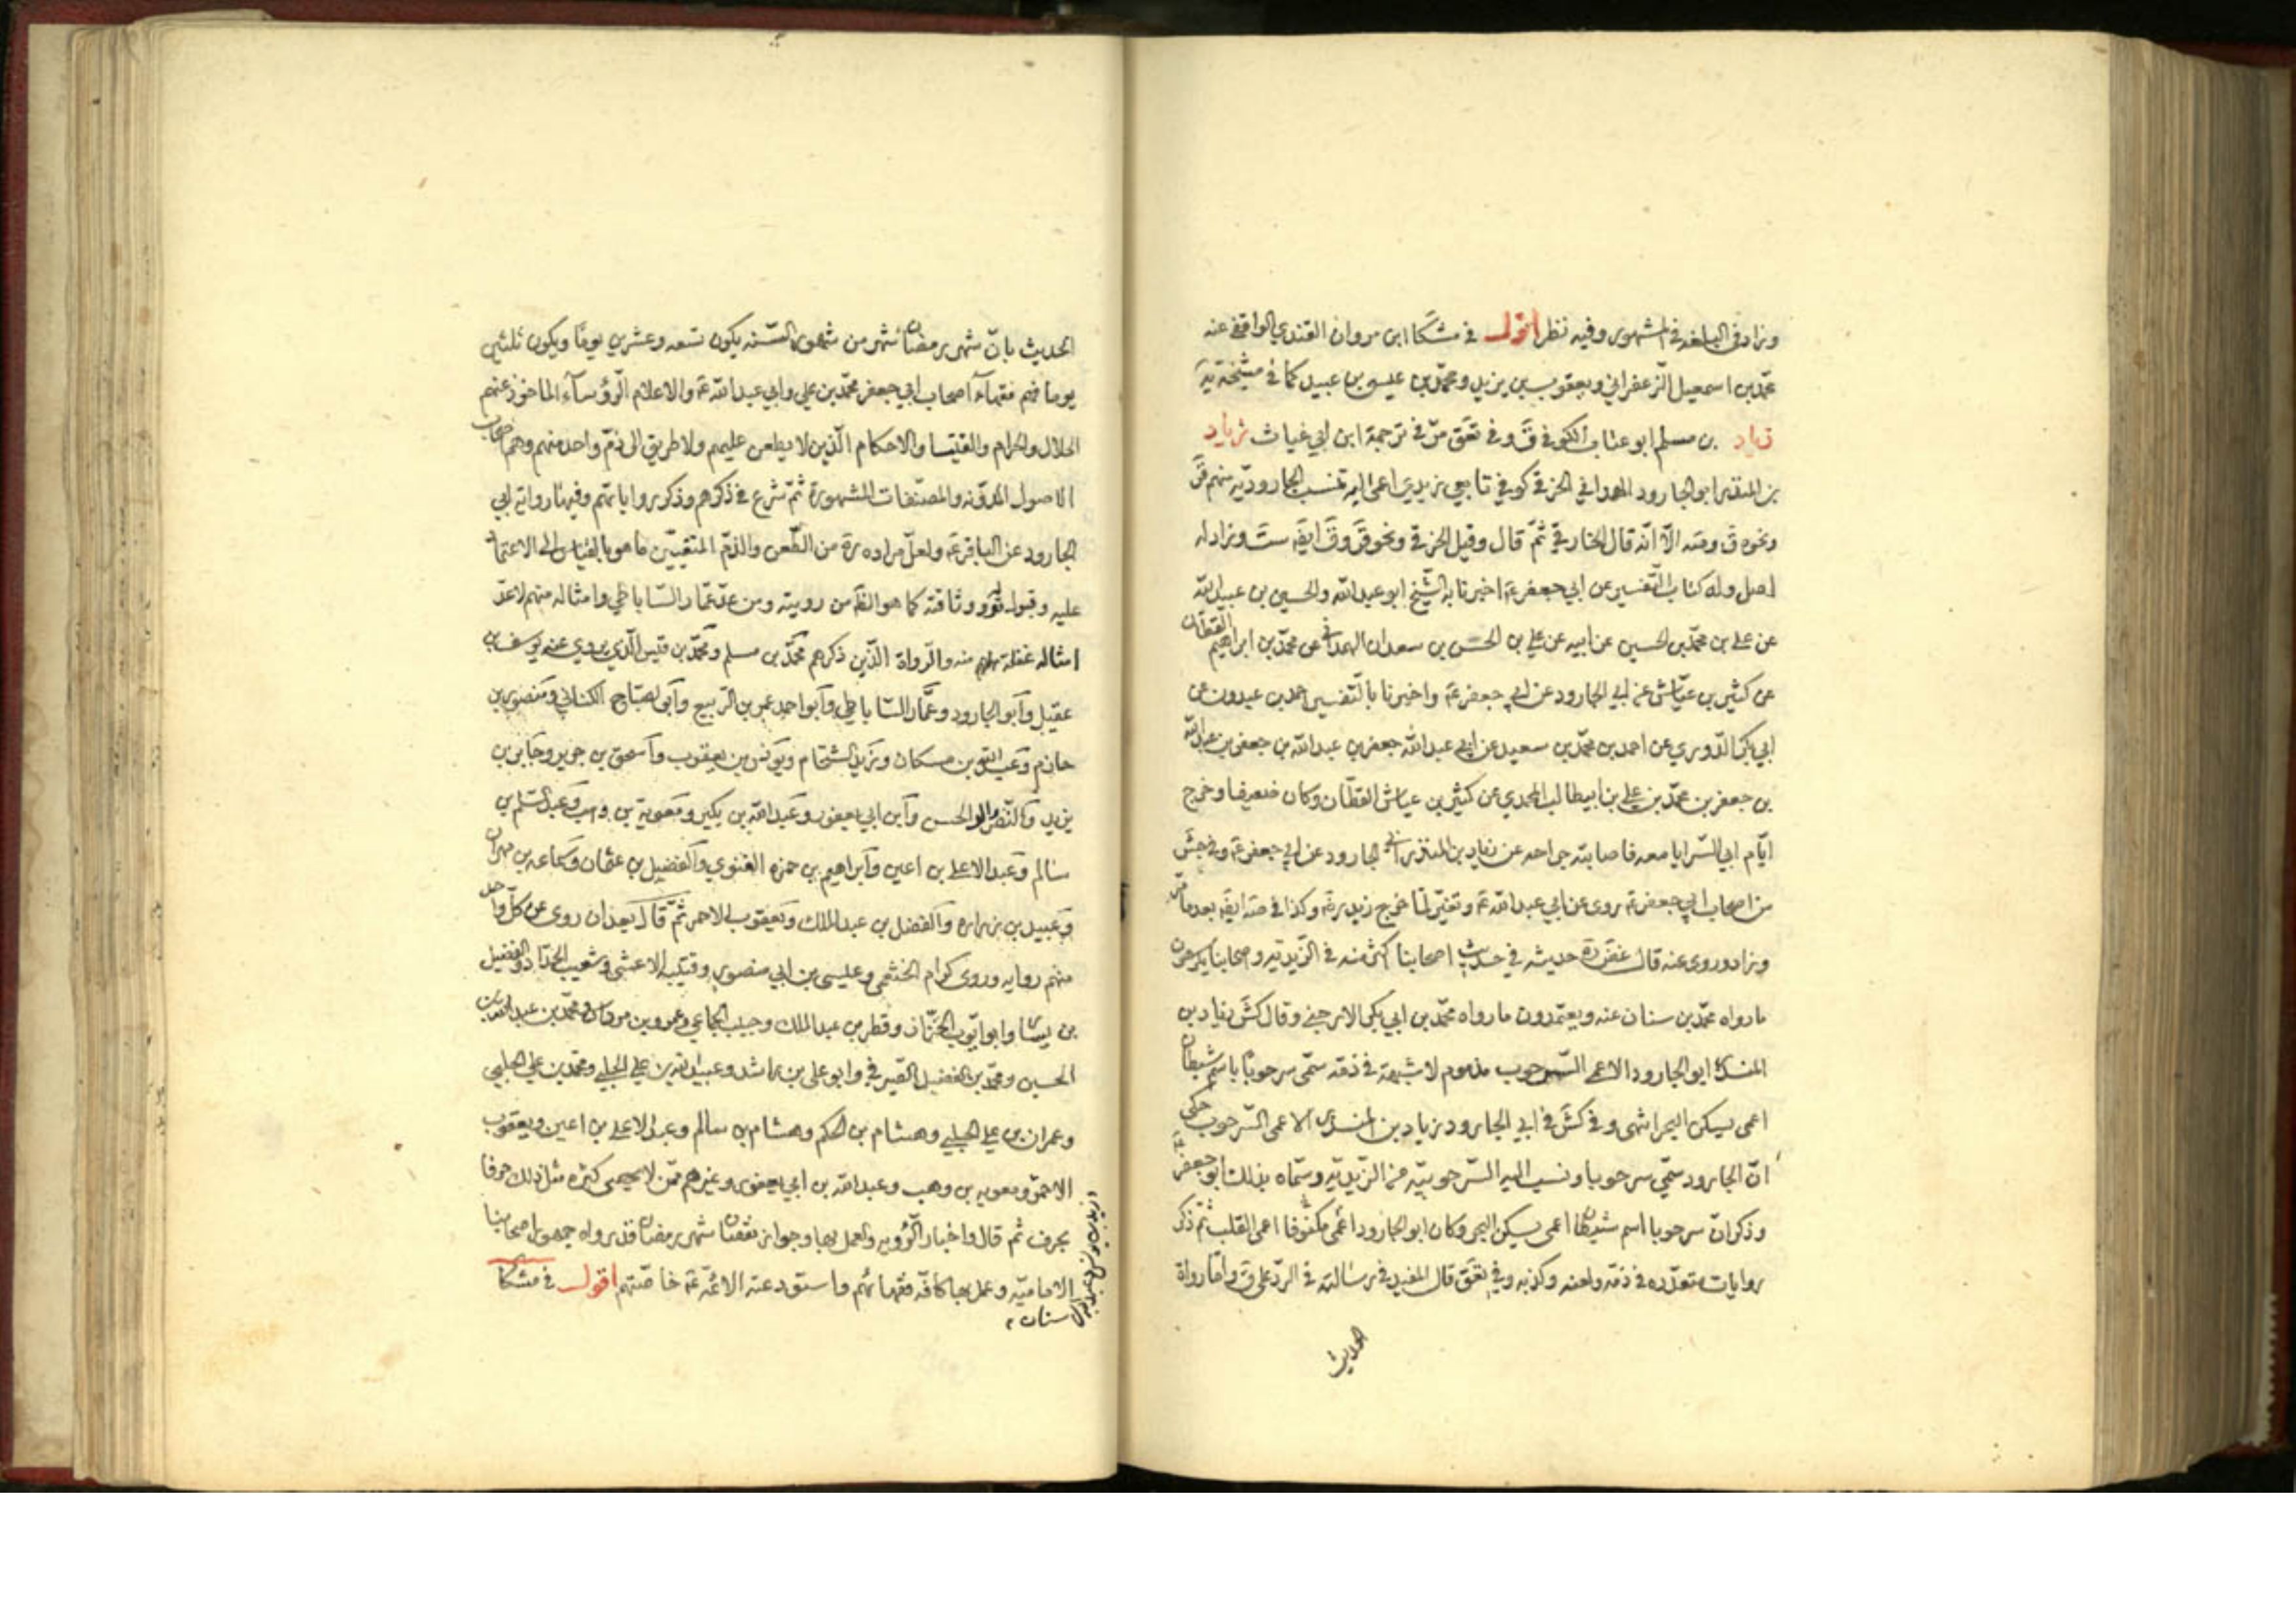 وزاد في البلغه في المشهور وفيه نظر اقول في مشكا ابن مروان القندي الواقفي عنه
محمّد بن اسمعيل الزعفراني ويعقوب بن يزيد ومحمّد بن عيسى بن عبيد كما في مشيخة يه
زياد بن مسلم ابو عتاب الكوفي ق وفي تعق مرّ في ترجمة ابن ابي غياث زياد
بن المنذر ابو الجارود الهمداني الخرقي كوفي تابعي زيدي اعمى اليه تنسب الجاروديّه منهم قر
ونحوه ق وصه الّا انّه قال الخارقي ثمّ قال وقيل الخرقي ونحو قر وق ايضَ ست وزاد له
اصل وله كتاب التّفسير عن ابي جعفر ع اخبرنا به الشّيخ ابو عبد الله والحسين بن عبيد الله
عن محمّد بن علي بن الحسين عن ابيه عن علي بن الحسين بن سعدان الهمداني عن محمّد بن ابراهيم القطّان
عن كثير بن عيّاش عن ابي الجارود عن ابي جعفر ع واخبرنا بالتّفسير احمد بن عبدون عن
ابي بكر الدّوري عن احمد بن محمّد بن سعيد عن ابي عبد الله جعفر بن عبد الله بن جعفر بن عبد الله
بن جعفر بن محمّد بن علي بن ابيطالب المحمدي عن كثير بن عياش القطّان وكان ضعيفا وخرج
ايّام ابي السّرايا معه فاصابته جراحه عن زياد بن المنذر ابي الجارود عن ابي جعفر ع وفي جش
من اصحاب ابي جعفر ع روى عن ابي عبد الله ع وتغيّر لمّا خرج زيد ره وكذا في صه ايضَ بعد ما مرّ
وزاد وروى عنه قال غض ره حديثه في حديث اصحابنا اكثر منه في الزّيديّه واصحابنا يكرهون
مارواه محمّد بن سنان عنه ويعتمدون مارواه محمّد بن ابي بكر الارجني وقال كش زياد بن
المنذر ابو الجارود الاعمى السّرحوب مذموم لا شبهة في ذمّه سمّي سرحوبًا باسم شيطان
اعمى يسكن البحر انتهى وفي كش في ابي الجارود زياد بن المنذر الاعمى السّرحوب حكى
انّ الجارود سمّي سرحوبا ونسب اليه السّرحوبيّه من الزّيديّه وسمّاه بذلك ابو جعفر ع
وذكر انّ سرحوبا اسم شيطان اعمى يسكن البحر وكان ابو الجارود اعمى مكفوفا اعمى القلب ثمّ ذكر
روايات متعدّده في ذمّه ولعنه وكذبه وفي تعق قال المفيد في رسالته في الردّ على ق وامّا رواة
الحديث
الحديث بانّ شهر رمضان شهر من شهور السّنه يكون تسعه وعشرين يومًا ويكون ثلثين
يوما فهم فقهاء اصحاب ابي جعفر محمّد بن علي وابي عبد الله ع والاعلام الرّؤساء الماخوذ عنهم
الحلال والحرام والفتيا والاحكام الّذين لا يطعن عليهم ولا طريق الى ذمّ واحد منهم وهم اصحاب
الاصول المدوّنه والمصنّفات المشهورة ثمّ شرع في ذكرهم وذكر رواياتهم وفيها رواية ابي
الجارود عن الباقر ع ولعلّ مراده ره من الطّعن والذمّ المنفيّين ما هو بالقياس الى الاعتماد
عليه وقبول قوله ووثاقته كما هو الظّ من رويته ومن عدّ عمّار السّاباطي وامثاله منهم لا عدّ
امثاله غفلة منه والرّواة الّذين ذكرهم محمّد بن مسلم ومحمّد بن قيس الّذي يروي عنه يوسف بن
عقيل وابو الجارود وعمّار السّاباطي وابو احمد عمر بن الرّبيع وابو الصباح الكناني ومنصور بن
حازم وعبد الله بن مسكان وزيد الشّحّام ويونس بن يعقوب واسحق بن جرير وجابر بن
يزيد والنّضر والد الحسن وابن ابي يعفور وعبد الله بن بكير ومعوية بن وهب وعبد السّلم بن
سالم وعبد الاعلى بن اعين وابراهيم بن حمزه الغنوي والفضيل بن عثمان وسماعه بن مهران
وعبيد بن زراره والفضل بن عبد الملك ويعقوب الاحمر ثمّ قال بعد ان روى عن كلّ واحد
منهم روايه وروى كرام الخثعمي وعيسى بن ابي منصور وقتيبه الاعشى وشعيب الحدّاد والفضيل
بن يسار وابو ايّوب الخرّاز وقطر بن عبد الملك وحبيب الجماعي وعمرو بن مرداس ومحمّد بن عبد الله بن
الحسين ومحمّد بن الفضيل الصّيرفي وابو علي بن راشد وعبيد الله بن علي الحلبي ومحمّد بن علي الحلبي
وعمران بن علي الحلبي وهشام بن الحكم وهشام بن سالم وعبد الاعلى بن اعين ويعقوب
الاحمر ومعويه بن وهب وعبد الله بن ابي يعفور وغيرهم ممّن لا يحصى كثره مثل ذلك حرفا
بحرف ثمّ قال واخبار الرّؤيه والعمل بها وجواز نقصان شهر رمضان قد رواه جمهور اصحابنا
الاماميّه وعمل بها كافّه فقهائهم واستودعته الائمّه ع خاصّتهم اقول في مشكا
وزيد بن يونس وعبد الله بن
سنان